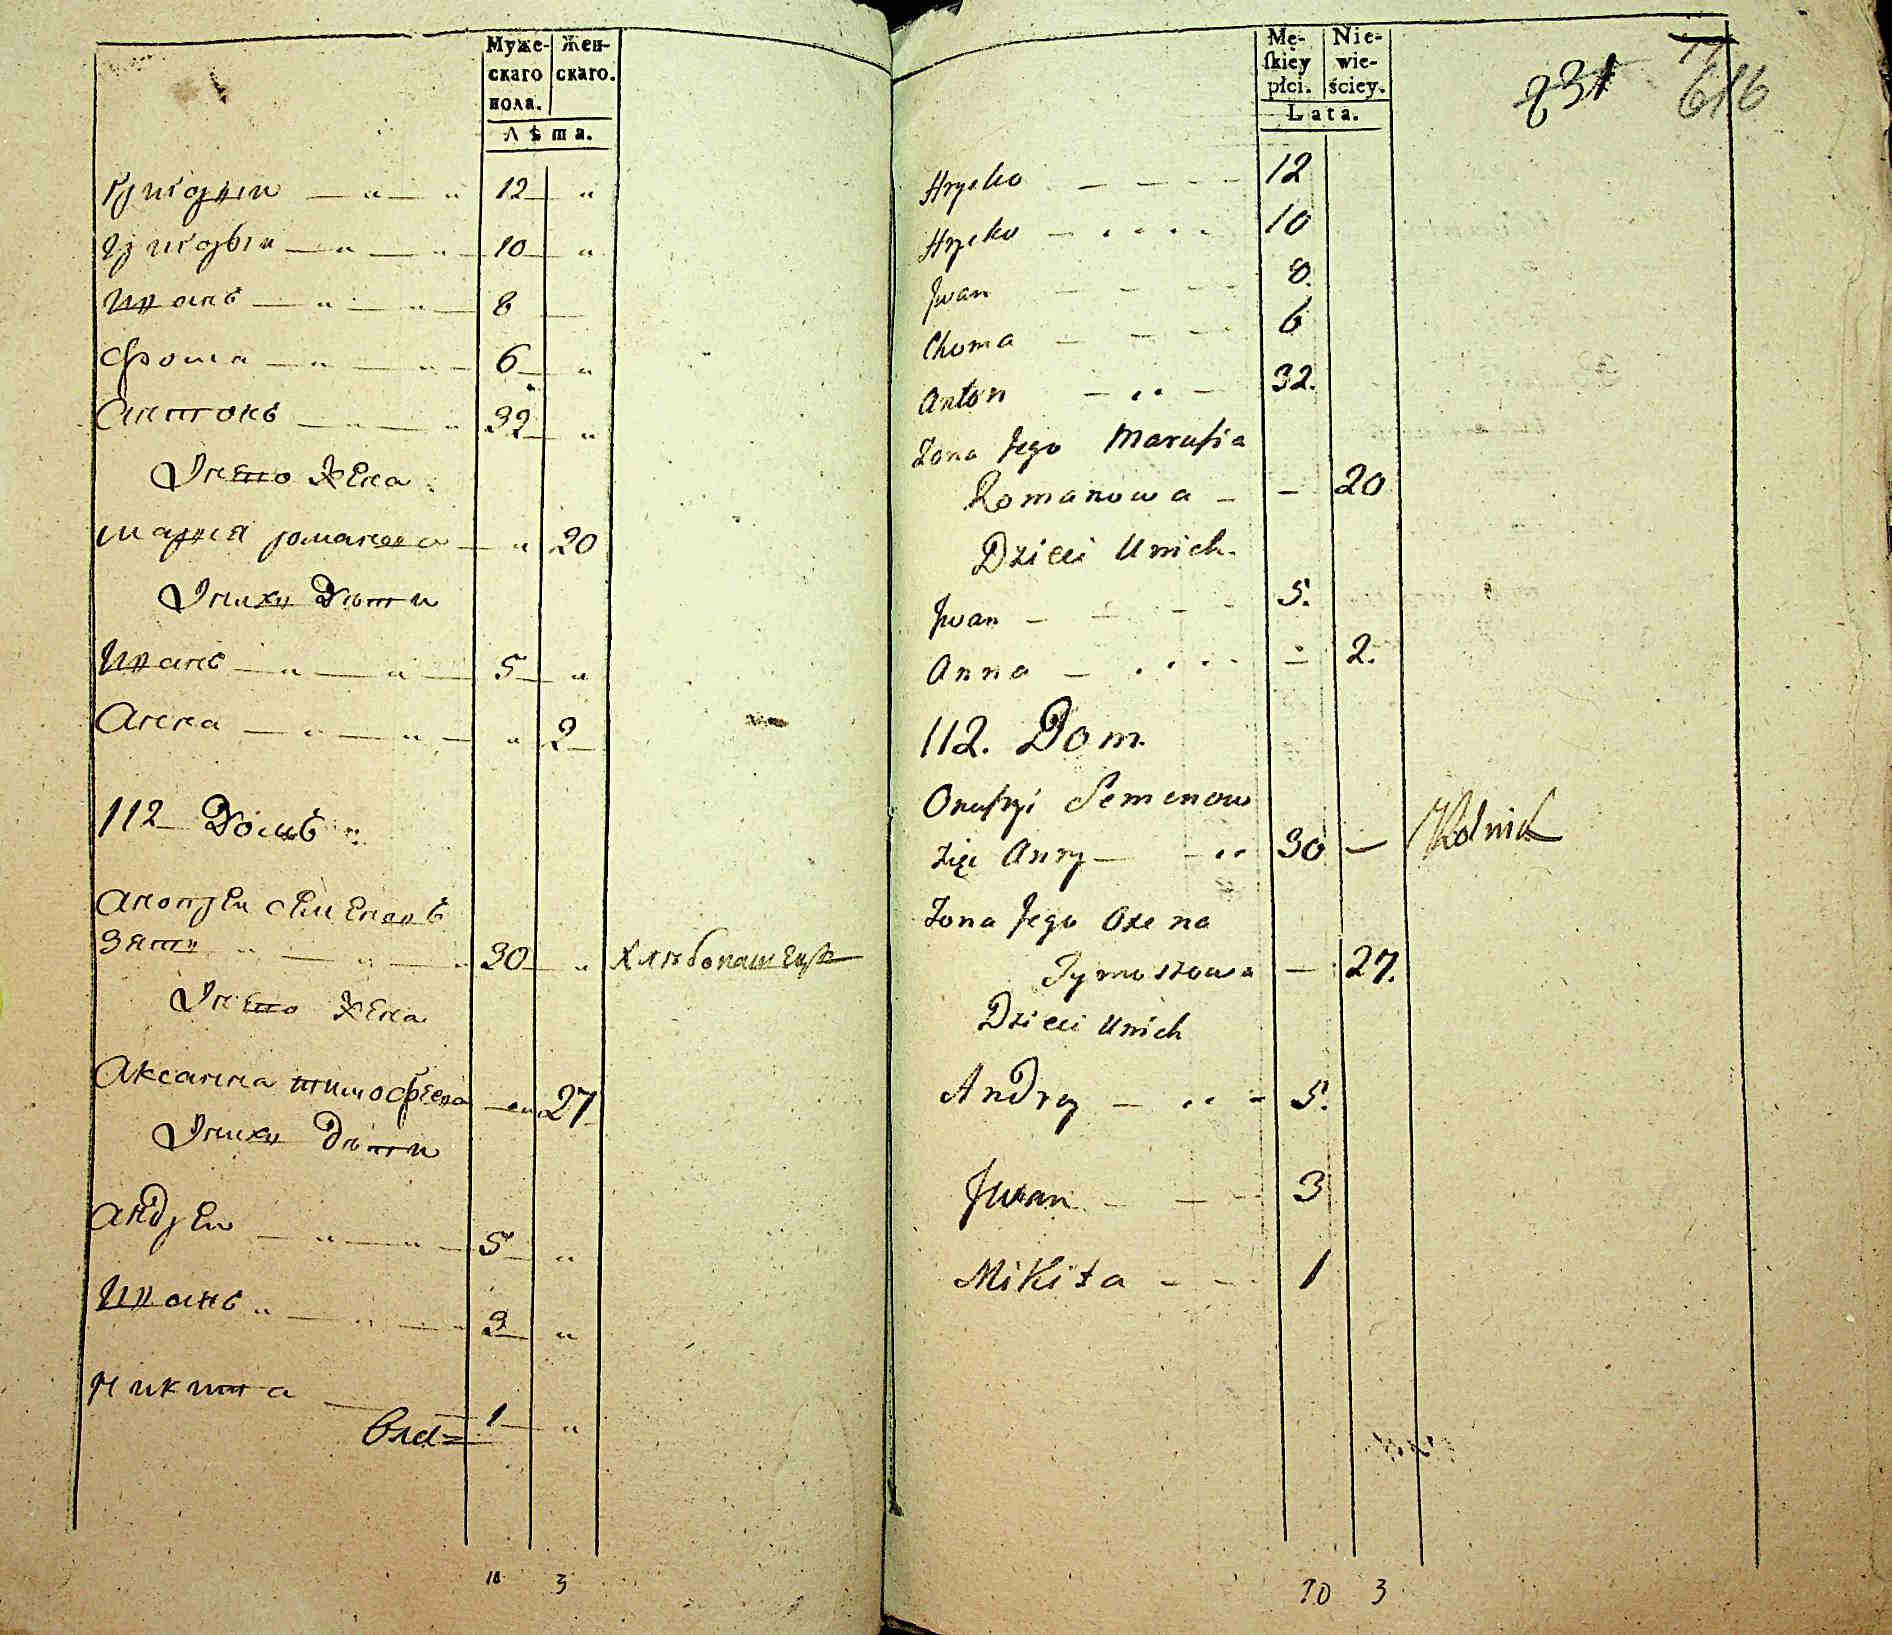 Муже-
скаго
пола.
Жен-
скаго.
Лѣта.
Григорiи 12
Григорiи 10
Иванъ 8
Фома 6
Антонъ 32
Унево Жена
Марья романова 20
Унихъ Дѣти
Иванъ 5
Анна 2
112 Домъ
Анопрей Семеновъ
Зять 30 Хлѣбопашецъ
Унево Жена
Аксанна тимофеева 27
Унихъ Дѣти
Андрей 5
Иванъ 3
Никита 1
10 3
Mę-
ſkiey
płci.
Nie-
wie-
ściey.
Lata.
231
616
Hrycko 12
Hrycko 10
Jwan 8.
Choma 6
Anton 32.
Zona Jego Marusia
Romanowa 20
Dzieci Unich
Jwan 5.
Anna 2.
112. Dom.
Onufryi Semenow
Zięć Anny 30 Rolnik
Zona Jego Oxena
Tymoszowa 27.
Dzieci Unich
Andrey 5.
Jwan 3
Mikita 1
10 3